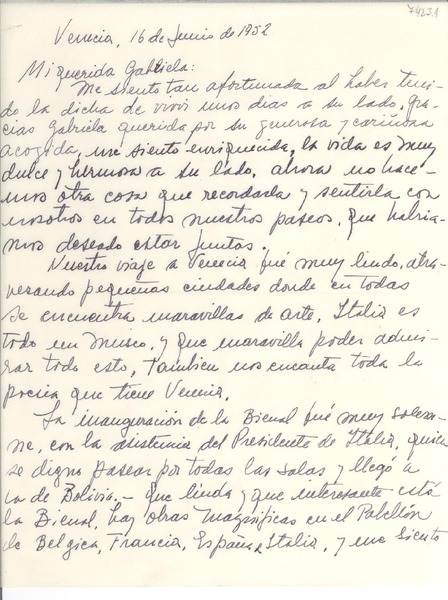 74231
Venecia, 16 de Junio de 1952
Mi querida Gabriela:
Me siento tan afortunada al haber teni-
do la dicha de vivir unos dias a su lado, gra-
cias Gabriela querida por su generosa y cariñosa
acogida, me siento enriquecida, la vida es muy
dulce y hermosa a su lado, ahora no hace-
mos otra cosa que recordarla y sentirla con
nosotros en todos nuestros paseos, que habria-
mos deseado estar juntos.
Nuestro viaje a Venecia fué muy lindo, atra-
vezando pequeñas ciudades donde en todas
se encuentra maravillas de arte, Italia es
todo un museo, y que maravilla poder admi-
rar todo esto, tambien nos encanta toda la
poesia que tiene Venecia.
La inauguración de la Bienal fué muy solem-
ne, con la asistencia del Presidente de Italia, quien
se digno pasear por todas las salas y llegó a
la de Bolivia.- Que linda y que interesante está
la Bienal, hay obras magnificas en el Pabellón
de Belgica, Francia, España, Italia, y me siento